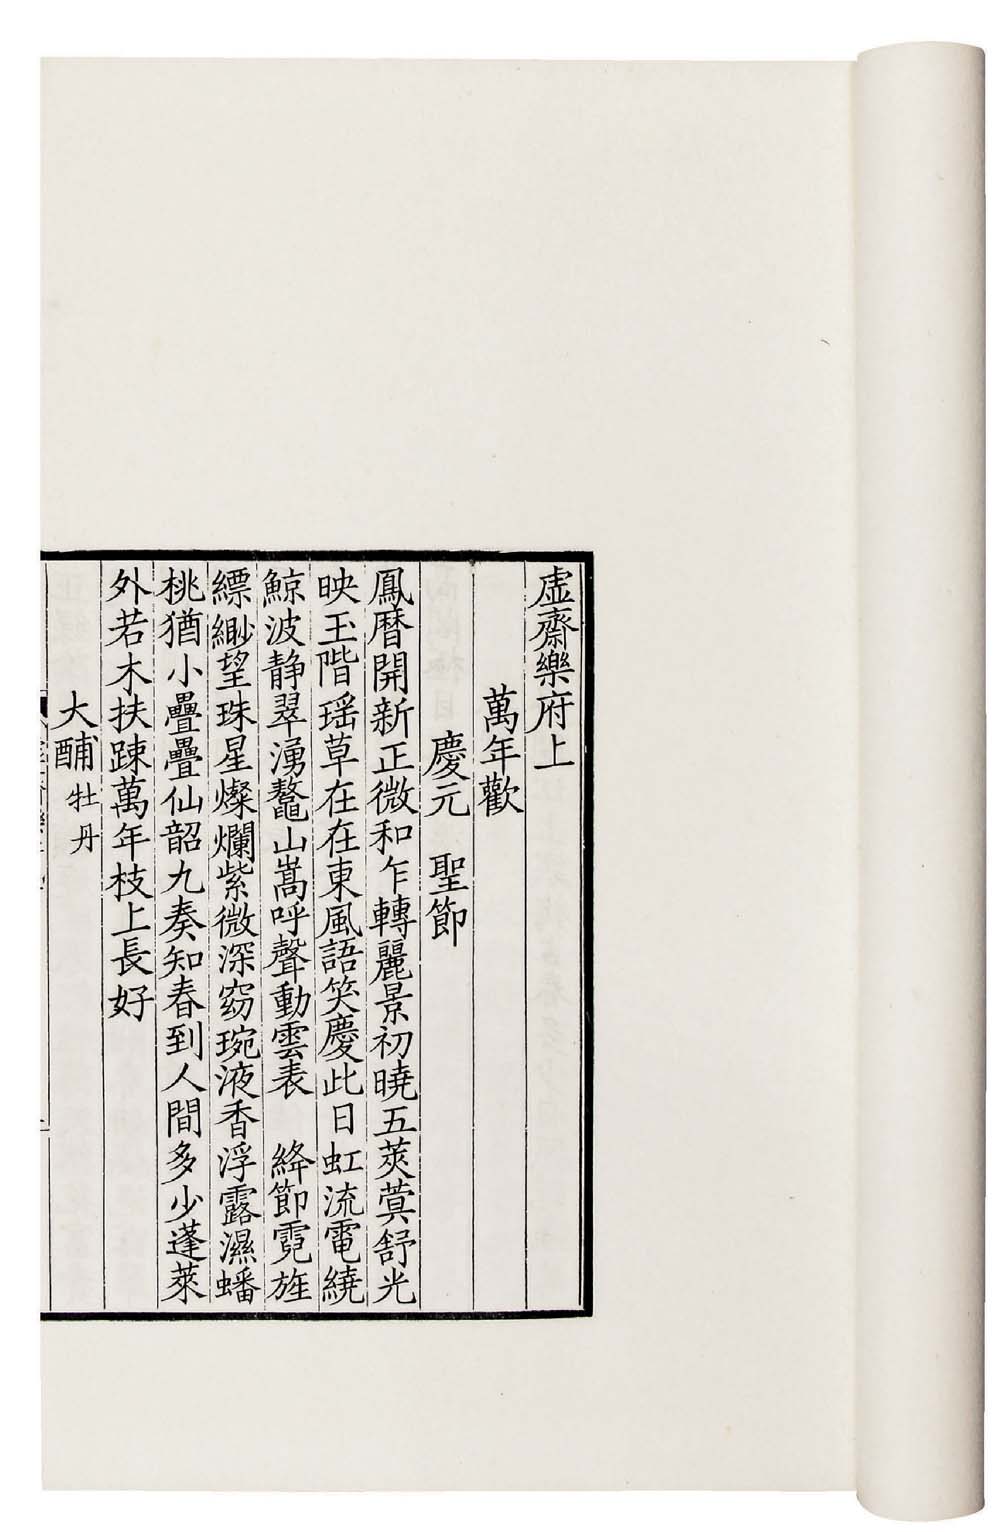 虛齋樂府上
萬年歡
慶元　聖節
鳳曆開新正微和乍轉麗景初曉五莢蓂舒光
映玉階瑶草在在東風語笑慶此日虹流電繞
鯨波静翠湧鼇山嵩呼聲動雲表　絳節霓旌
縹緲望珠星燦爛紫微深窈琬液香浮露濕蟠
桃猶小疊疊仙韶九奏知春到人間多少蓬萊
外若木扶踈萬年枝上長好
大酺 牡丹